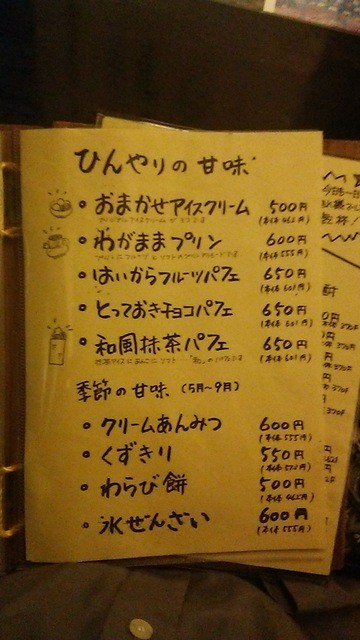 ひんやりの甘味
おまかせアイスクリーム 500円
(本体462円)
わがままプリン 600円
(本体555円)
はいからフルーツパフェ 650円
(本体601円)
とっておきチョコパフェ 650円
(本体601円)
和風抹茶パフェ 650円
(本体601円)
季節の甘味 (5月〜9月)
クリームあんみつ 600円
(本体555円)
くずきり 550円
わらび餅 500円
(本体462円)
氷ぜんざい 600円
(本体555円)